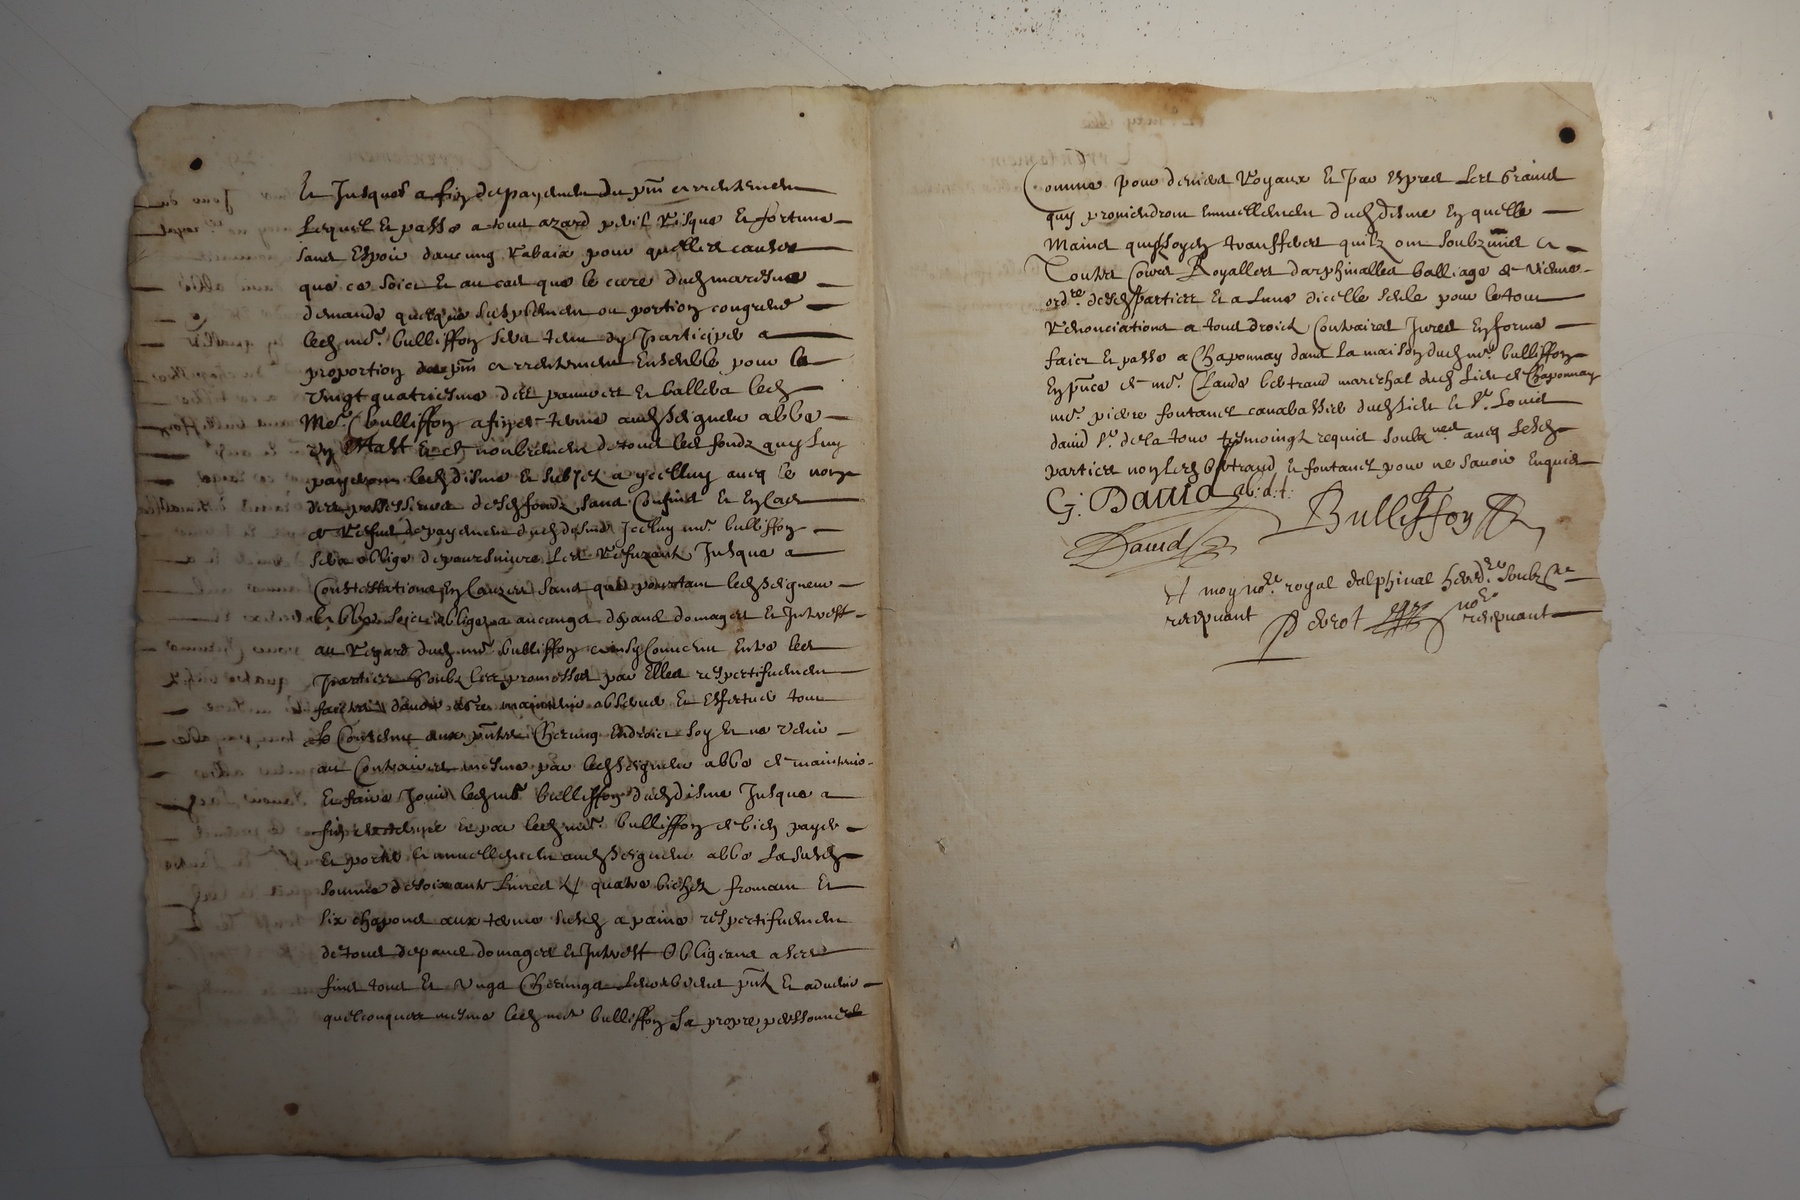 Et Jusques a fin de payement du pnt arrentement
Lequel Et passe a tout azard peril Risque Et fortune
sans Espoir daucung Rabaix pour quelles causes
que ce soict Et au cas que le cure dud maresme
demande quelque suplement ou portion congrue
led mr. bulliffon sera tenu dy participer a
proportion du pnt arrentement Ensemble pour la
vingt quatriesme des pauvres Et baillera led
Mr. bulliffon a fin de terme aud seigneur abbe
Un estat et nombrement de tous les fondz quy luy
payeront led disme Et subject a ycelluy avec le nom
des possesseurs desd fondz sans Confins Et En cas
de Refus de payement dud disme Jcelluy mr. bulliffon
sera oblige de poursuivre Les Refuzant Jusque a
Contestations En Cauze sans que pourtant led seigneur
abbe soict oblige a aucungs depans domages Et Jnterest
au Regard dud mr. bulliffon ainsy Convenu Entre les
parties soubz les promesses par Elles respectivement
faictes davoir maintenir observer Et Effectuer tout
le Contenu aux pntes Chescung Endroict soy Et ne venir
au Contraire mesme par led seigneur abbe de maintenir
Et faire Jouir led mr. bulliffon dud disme Jusque a
fin de terme Et par led mr. bulliffon de bien payer
Et porter annuellement aud seigneur abbe La susd
somme de soixante Livres quatre bichetz fromant Et
six chapons aux terme susd a paine respectivement
de tous depans domages Et Jnterest Obligeans a ses
fins tous Et ungs Chescungs Leurs biens pntz Et advenir
quelconques mesme led mr bulliffon sa propre personne
Comme pour deniers Royaux Et par Expres Les Grains
quy proviendront annuellement dud disme En quelle
Mains quilz soyent transferes quilz ont soubzmis a
Toutes Cours Royalles darphinalles balliage de vienne
ordre. desd parties Et a Lune dicelle seule pour le tout
Renonciations a tous droictz Contraires Jures En forme
faict Et passe a Chaponnay dans La maison dud mr. bulliffon
En pnce de mr. Claude bertrand mareschal dud Lieu de Chaponnay
mr. pierre fontanel canabassier dud lieu Et sr. Louis
david sr. de la tour tesmoingtz requis soubznes avec Lesd
parties non led bertrand Et fontanel pour ne savoir Enquis
G. David ab. d. t.
Bulliffon
David
Et moy nore. royal dalphinal hered.re soubzne
recepvant Perrot nore recepvant